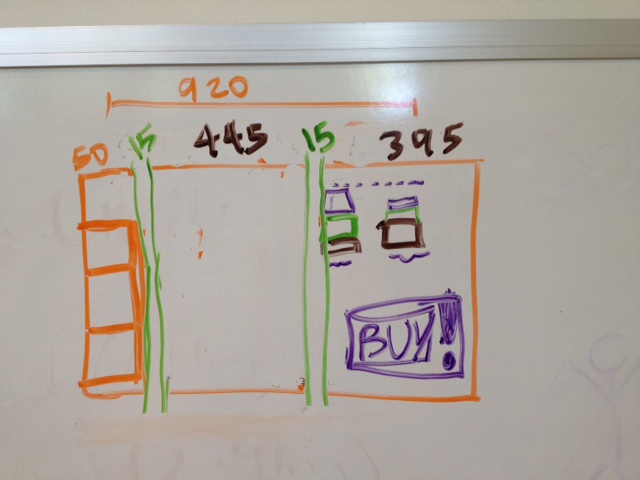 920
50 15 445 15 395
BUY!